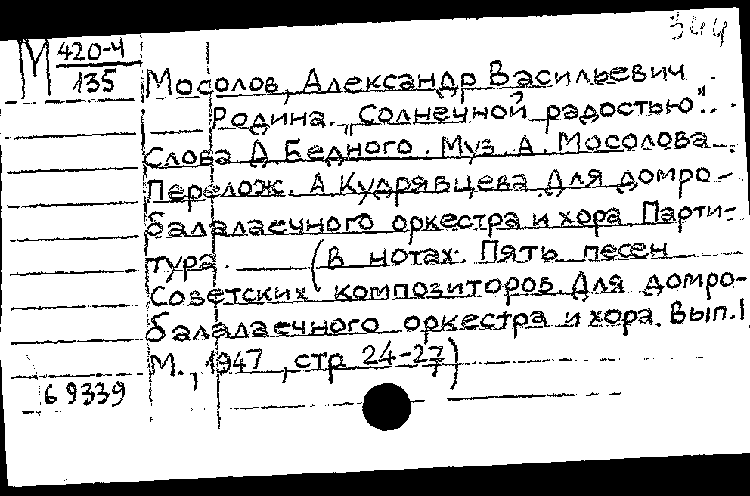 344
М 420-4
135
Мосолов, Александр Васильевич
Родина. „Солнечной радостью"..
Слова Д. Бедного. Муз. А. Мосолова.
Перелож. А Кудрявцева. Для домро-
балалаечного оркестра и хора. Парти-
тура. (в нотах: Пять песен
Советских композиторов. Для домро-
балалаечного оркестра и хора. Вып. 1
М., 1947, стр 24-27)
69339